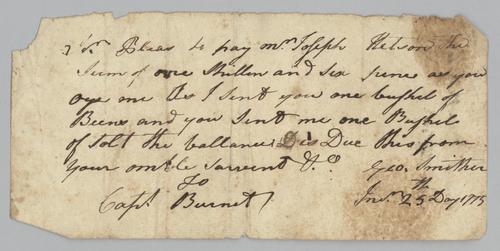 Sr Pleas to pay mr Joseph Kelson the
Sum of one Shillen and Six pence as you
oye me As I Sent you one bushel of
Beens and you Sent me one Bushel
of Solt the ballance is Due this from
your omble Sarvent &c
Geo. Smither
To
Capt Burnet
25th Day 1775